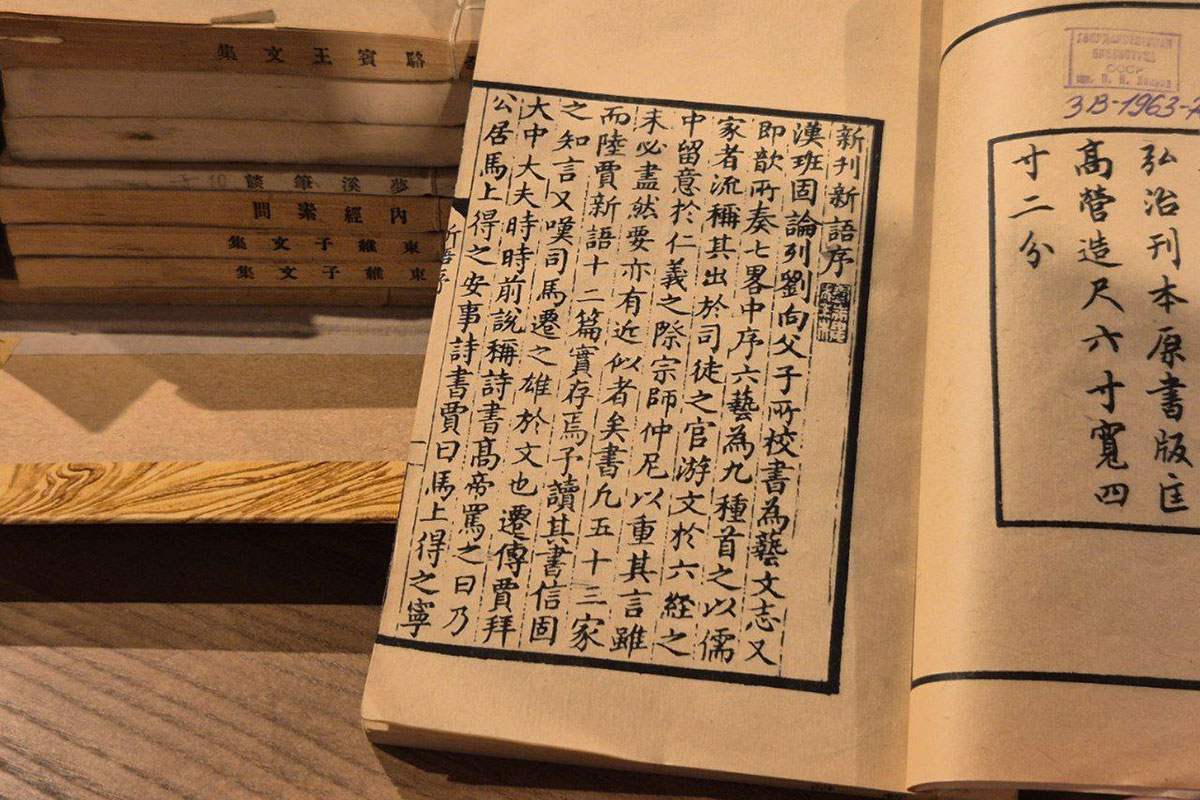 弘治刊本原書版匡
高營造尺六寸寬四
寸二分
ГОСУДАРСТВЕННАЯ
БИБЛИОТЕКА
СССР
им. В. И. Ленина
3В-1963-
新刊新語序
漢班固論列劉向父子所校書為藝文志又
即歆所奏七畧中序六藝為九種首之以儒
家者流稱其出於司徒之官游文於六経之
中留意於仁義之際宗師仲尼以重其言雖
未必盡然要亦有近似者矣書凡五十三家
而陸賈新語十二篇實存焉予讀其書信固
之知言又嘆司馬遷之雄於文也遷傳賈拜
大中大夫時時前說稱詩書髙帝罵之曰乃
公居馬上得之安事詩書賈曰馬上得之寧
駱賓王文集
夢溪筆談
內經素問
東維子文集
東維子文集